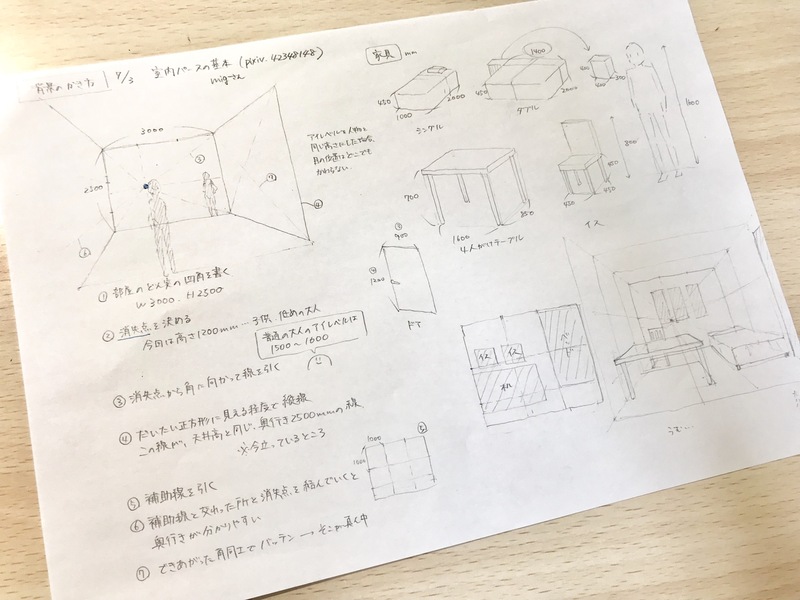 背景のかき方
7/3 室内パースの基本 (pixiv. 42348148)
migさん
3000
2500
③
⑦
④
⑥
アイレベルを人物と
同じ高さにした場合、
目の位置はどこでも
かわらない
① 部屋のどん突の四角を書く
W3000. H2500
② 消失点を決める
今回は高さ1200mm…子供、低めの大人
普通の大人のアイレベルは
1500〜1600
③ 消失点から角に向かって線を引く
④ だいたい正方形に見える程度で縦線
この線が、天井高と同じ、奥行き2500mmの線
※今立っているところ
⑤ 補助線を引く
⑥ 補助線と交わった所と消失点を結んでいくと
奥行きが分かりやすい
⑦ できあがった角同士でバッテン → そこが真ん中
1000
1000
⑤
家具 mm
450
1000
2000
シングル
1400
450
2000
ダブル
400
300
1600
700
1600
850
4人がけテーブル
800
450
450
450
イス
900
ドア
イス
イス
机
ベッド
うむ…